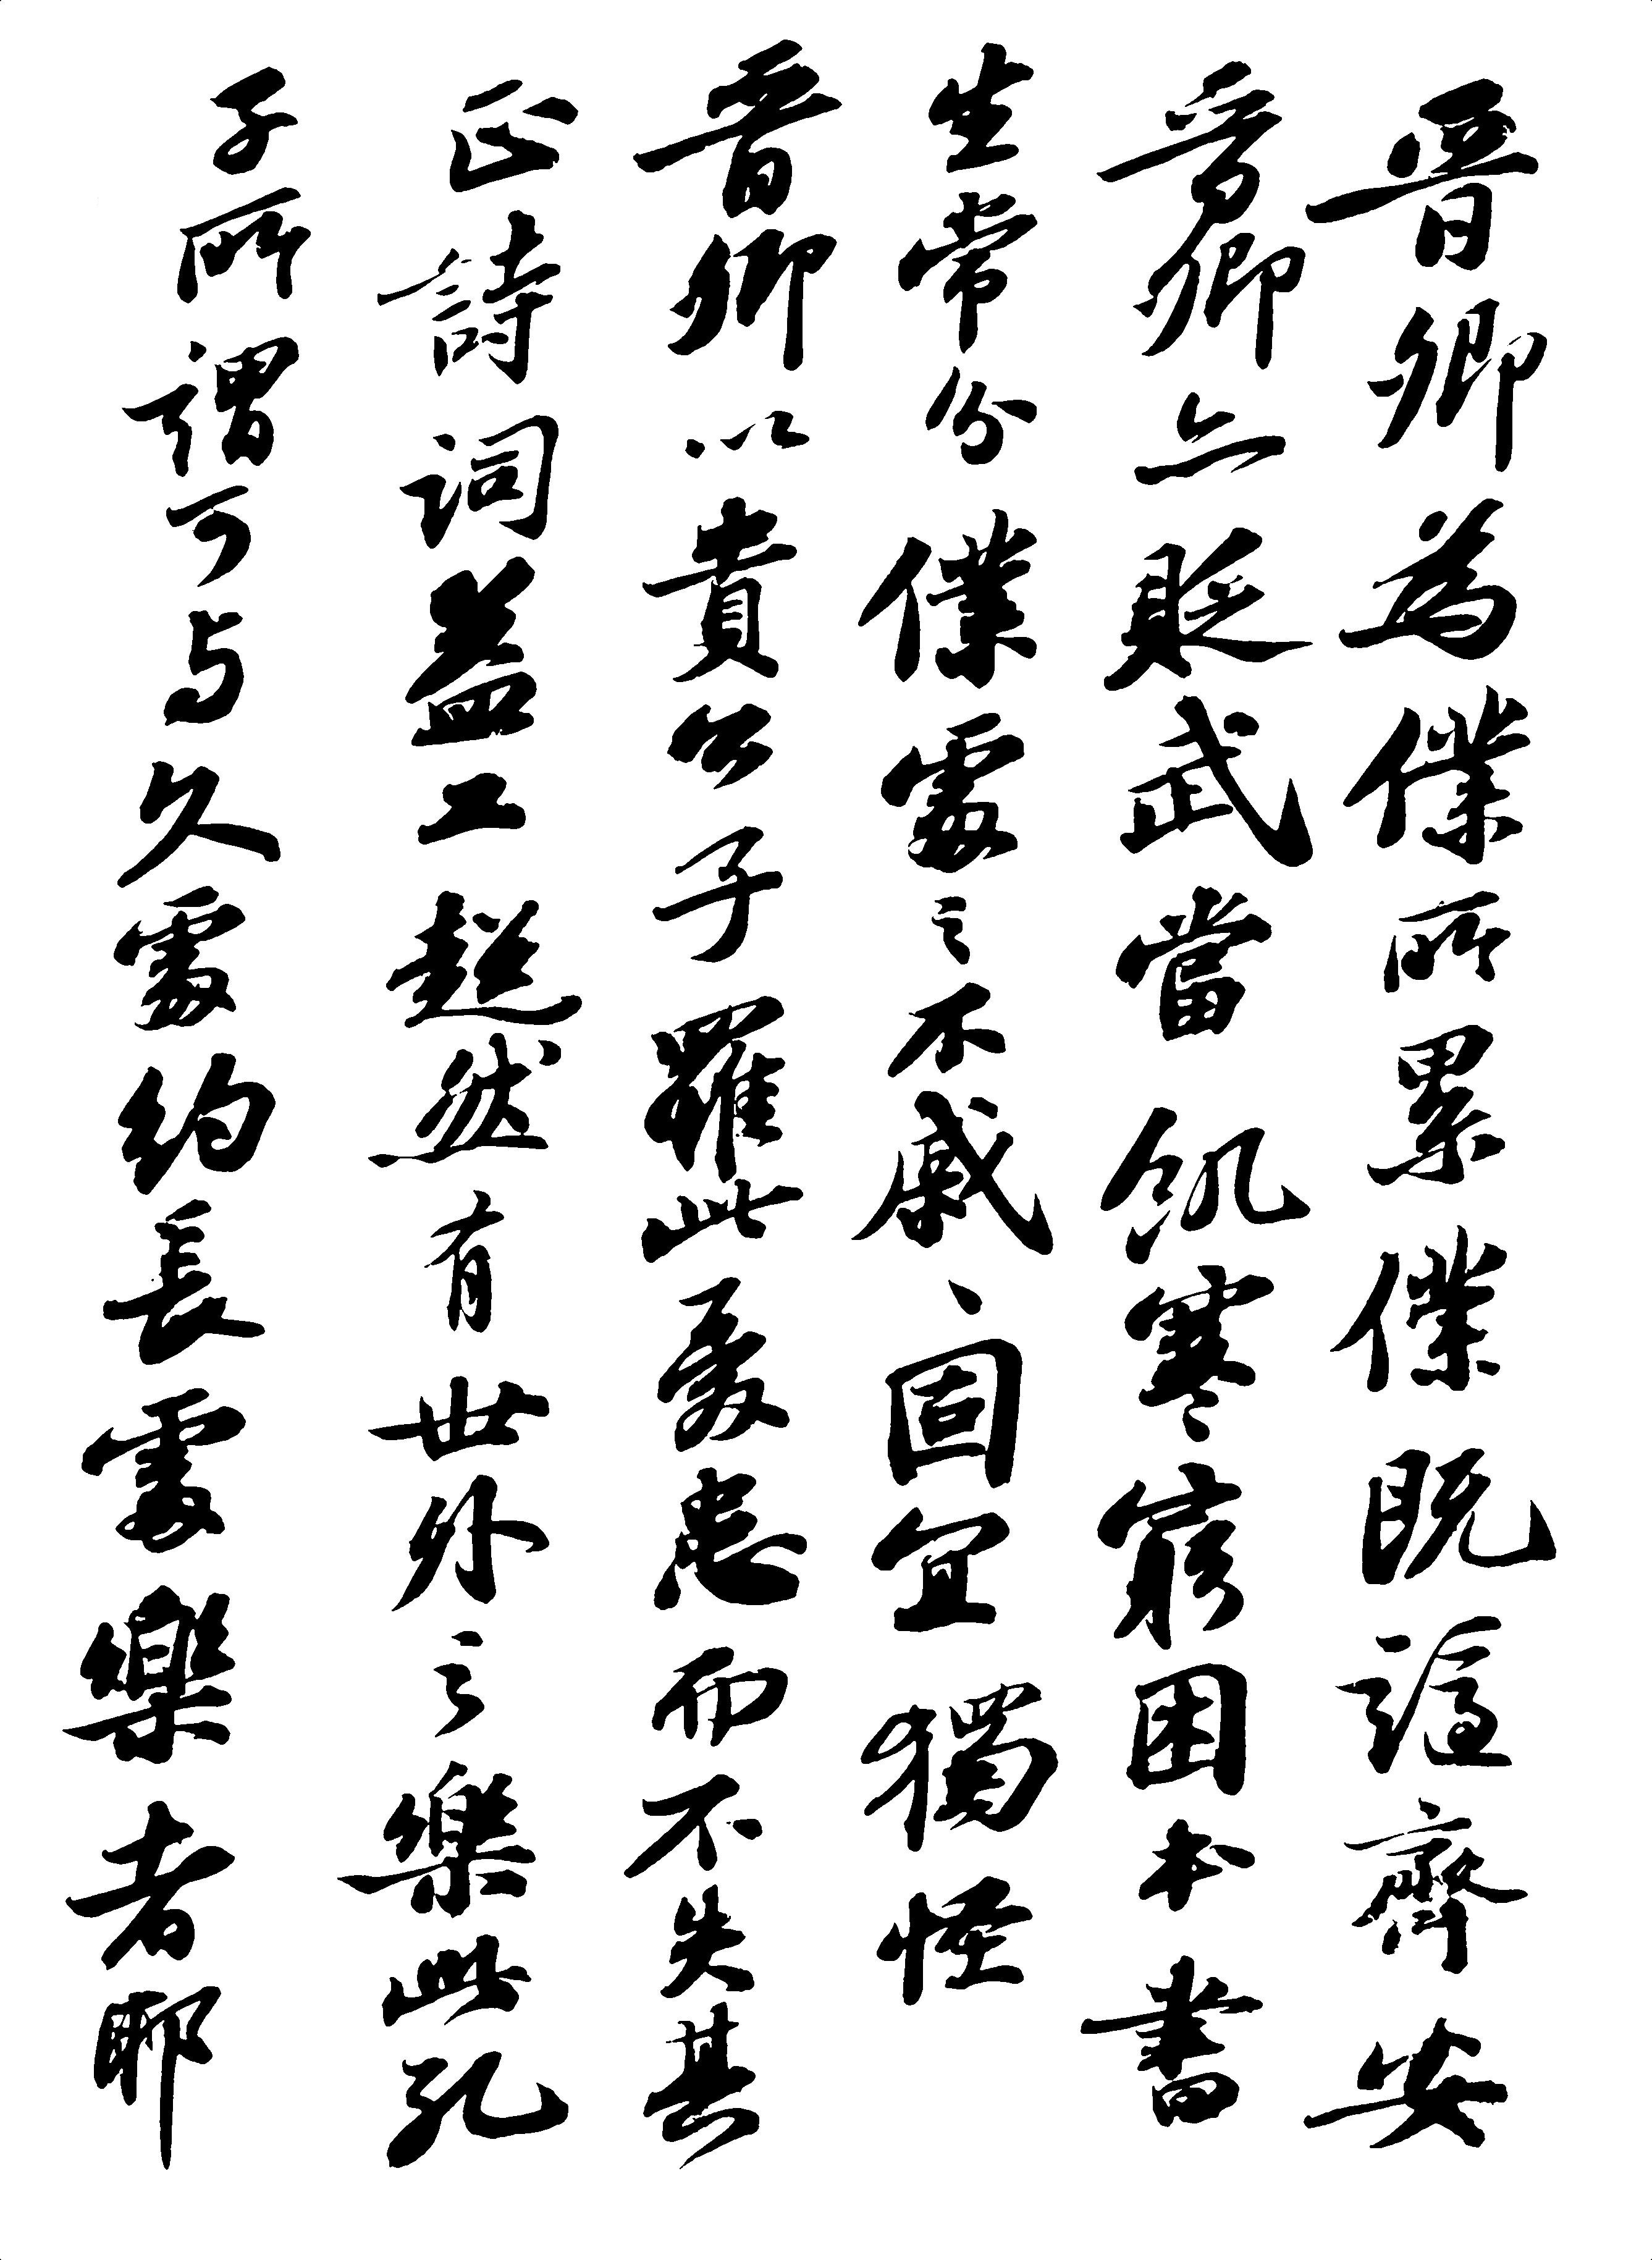 晉卿為僕所累僕既謫齊安
晉卿亦貶武當飢寒窮困本書
生常分僕處之不戚戚固宜獨怪
晉卿以貴公子罹此憂患而不失其
正詩詞益工超然有世外之樂此孔
子所謂可與久處約長處樂者耶